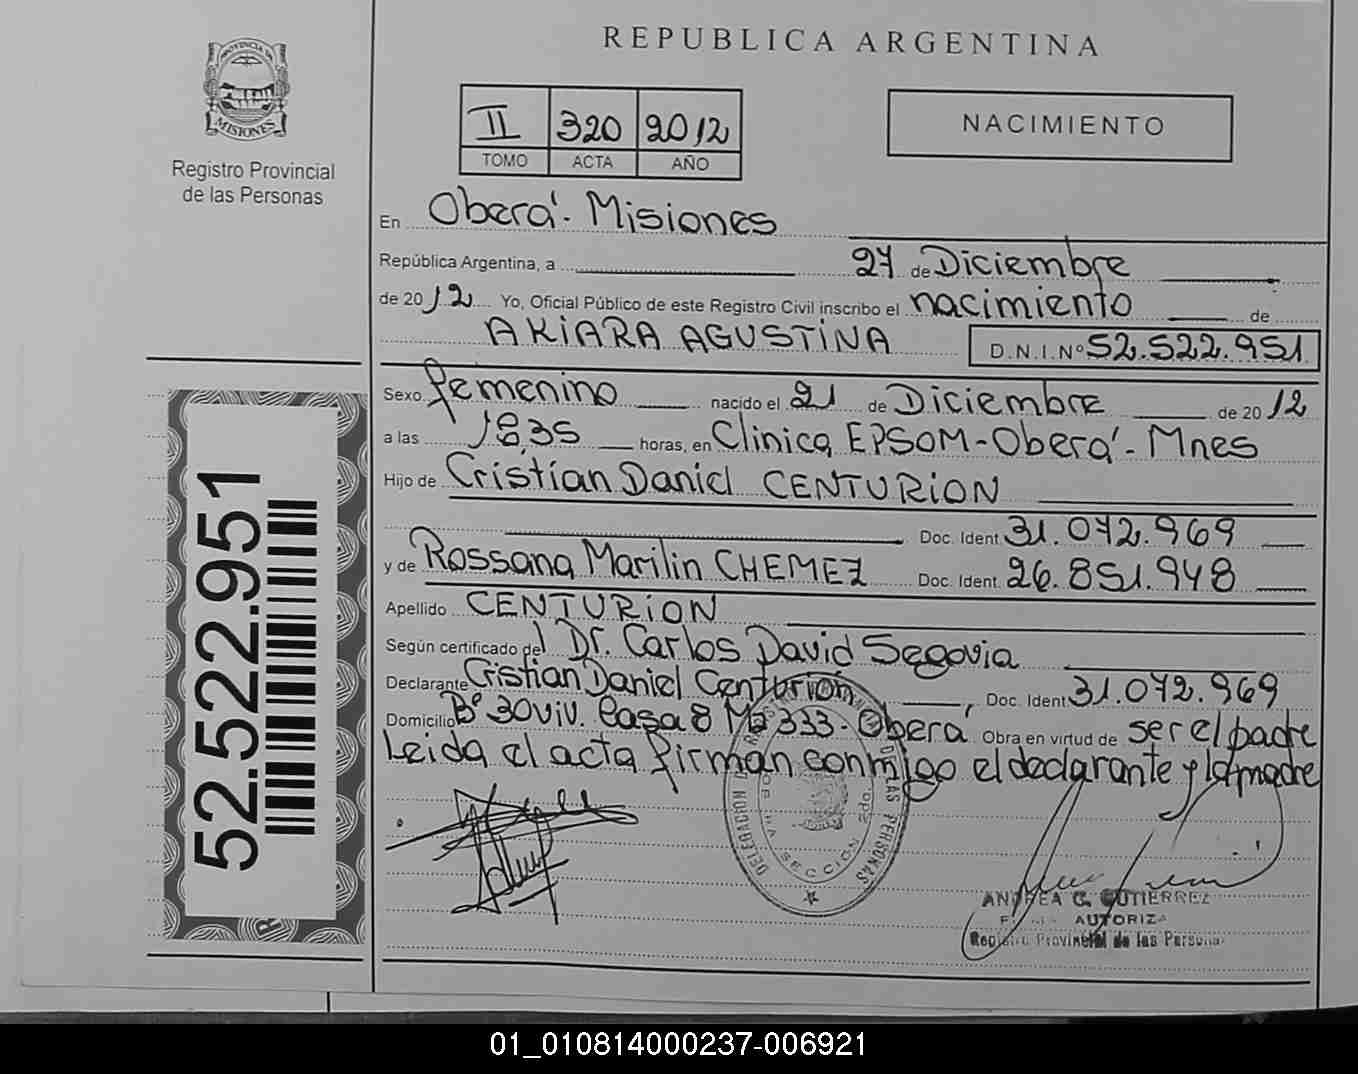 REPUBLICA ARGENTINA
PROVINCIA DE
MISIONES
Registro Provincial
de las Personas
II 320 2012
TOMO ACTA AÑO
NACIMIENTO
En Oberá - Misiones
República Argentina, a 27 de Diciembre
de 2012 Yo, Oficial Público de este Registro Civil inscribo el nacimiento de
AKIARA AGUSTINA D.N.I.Nº 52.522.951
Sexo femenino nacido el 21 de Diciembre de 2012
a las 18,35 horas, en Clinica EPSOM-Oberá - Mnes
Hijo de Cristian Daniel CENTURION
Doc. Ident. 31.072.969
y de Rossana Marilin CHEMEZ Doc. Ident. 26.851.948
Apellido CENTURION
Según certificado del Dr. Carlos David Segovia
Declarante Cristian Daniel Centurion, Doc. Ident. 31.072.969
Domicilio Bº 30 viv. Casa 8 Mz 333 - Oberá Obra en virtud de ser el padre
Leida el acta firman conmigo el declarante y la madre
52.522.951
DELEGACION REGISTRO PROVINCIAL DE LAS PERSONAS
SECCION 2da.
ANDREA C. GUTIERREZ
AUTORIZ
Registro Provincial de las Personas
01_010814000237-006921